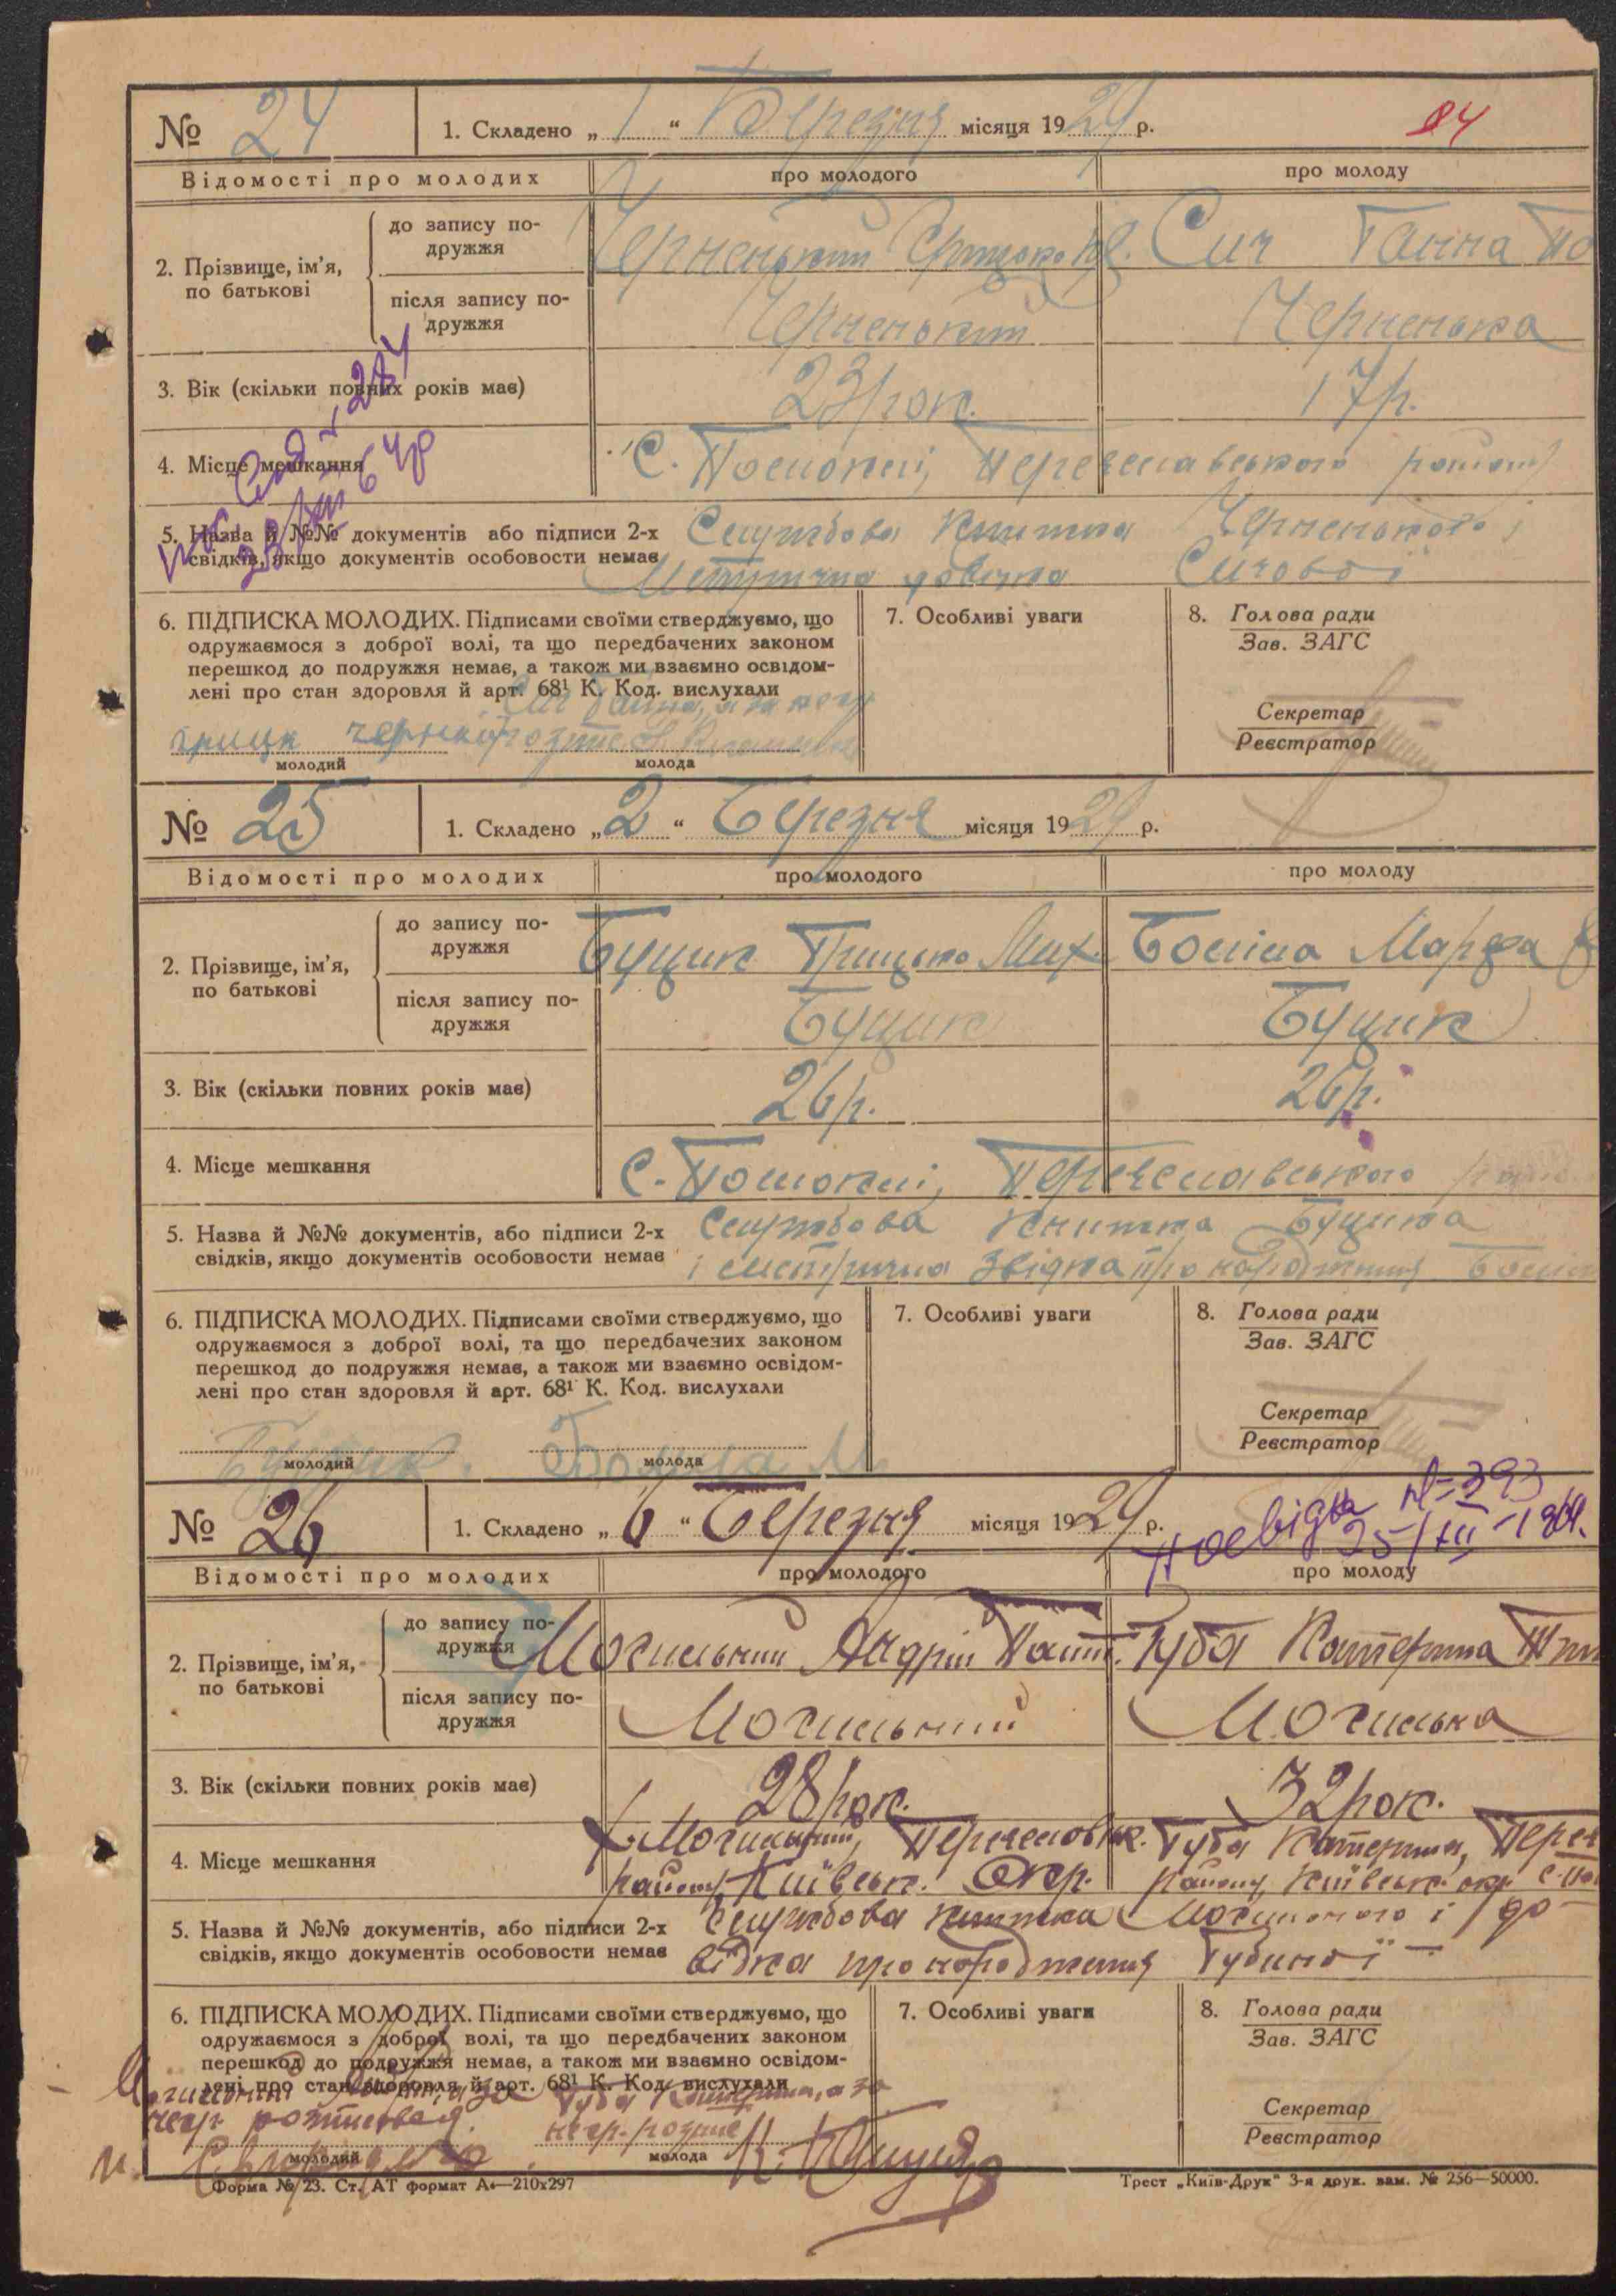 № 24 1. Складено „ 1 “ Березня місяця 1929 р. 84
Відомості про молодих про молодого про молоду
2. Прізвище, ім’я, по батькові
до запису по-
дружжя
Черненький Грицько Сич Ганна
після запису по-
дружжя
Черненький Черненька
3. Вік (скільки повних років має) 23 рок. 17 р.
4. Місце мешкання С. Помоклі, Переяславського району
5. Назва й №№ документів або підписи 2-х Службова книжка Черненького і
свідків, якщо документів особовости немає Метрична довідка Сичової
6. ПІДПИСКА МОЛОДИХ. Підписами своїми стверджуємо, що
одружаємося з доброї волі, та що передбачених законом
перешкод до подружжя немає, а також ми взаємно освідом-
лені про стан здоровля й арт. 68¹ К. Код. вислухали
Сич Ганна, а за негр
молодий молода
7. Особливі уваги
8. Голова ради
Зав. ЗАГС
Секретар
Реєстратор
№ 25 1. Складено „ 2 “ Березня місяця 1929 р.
Відомості про молодих про молодого про молоду
2. Прізвище, ім’я, по батькові
до запису по-
дружжя
Буцик Грицько Мих. Марфа
після запису по-
дружжя
Буцик Буцик
3. Вік (скільки повних років має) 26 р. 26 р.
4. Місце мешкання С. Помоклі, Переяславського
5. Назва й №№ документів, або підписи 2-х Службова книжка Буцика
свідків, якщо документів особовости немає і метрична звідка про народження
6. ПІДПИСКА МОЛОДИХ. Підписами своїми стверджуємо, що
одружаємося з доброї волі, та що передбачених законом
перешкод до подружжя немає, а також ми взаємно освідом-
лені про стан здоровля й арт. 68¹ К. Код. вислухали
Буцик.
молодий молода
7. Особливі уваги
8. Голова ради
Зав. ЗАГС
Секретар
Реєстратор
№ 26 1. Складено „ 6 “ Березня місяця 1929 р.
Відомості про молодих про молодого про молоду
2. Прізвище, ім’я, по батькові
до запису по-
дружжя
Могильний Андрій Губа Катерина
після запису по-
дружжя
Могильний Могилька
3. Вік (скільки повних років має) 28 рок. 32 рок.
4. Місце мешкання Могильний, Губа Катерина,
району, Київськ. Окр. району, Київськ. окр.
5. Назва й №№ документів, або підписи 2-х Службова книжка і до-
свідків, якщо документів особовости немає відка про народження Губиної
6. ПІДПИСКА МОЛОДИХ. Підписами своїми стверджуємо, що
одружаємося з доброї волі, та що передбачених законом
перешкод до подружжя немає, а також ми взаємно освідом-
лені про стан здоровля й арт. 68¹ К. Код. вислухали
Губа Катерина, а за
негр.
молодий молода
7. Особливі уваги
8. Голова ради
Зав. ЗАГС
Секретар
Реєстратор
Форма № 23. Ст. АТ формат А₄—210х297 Трест „Київ-Друк“ 3-я друк. зам. № 256—50000.